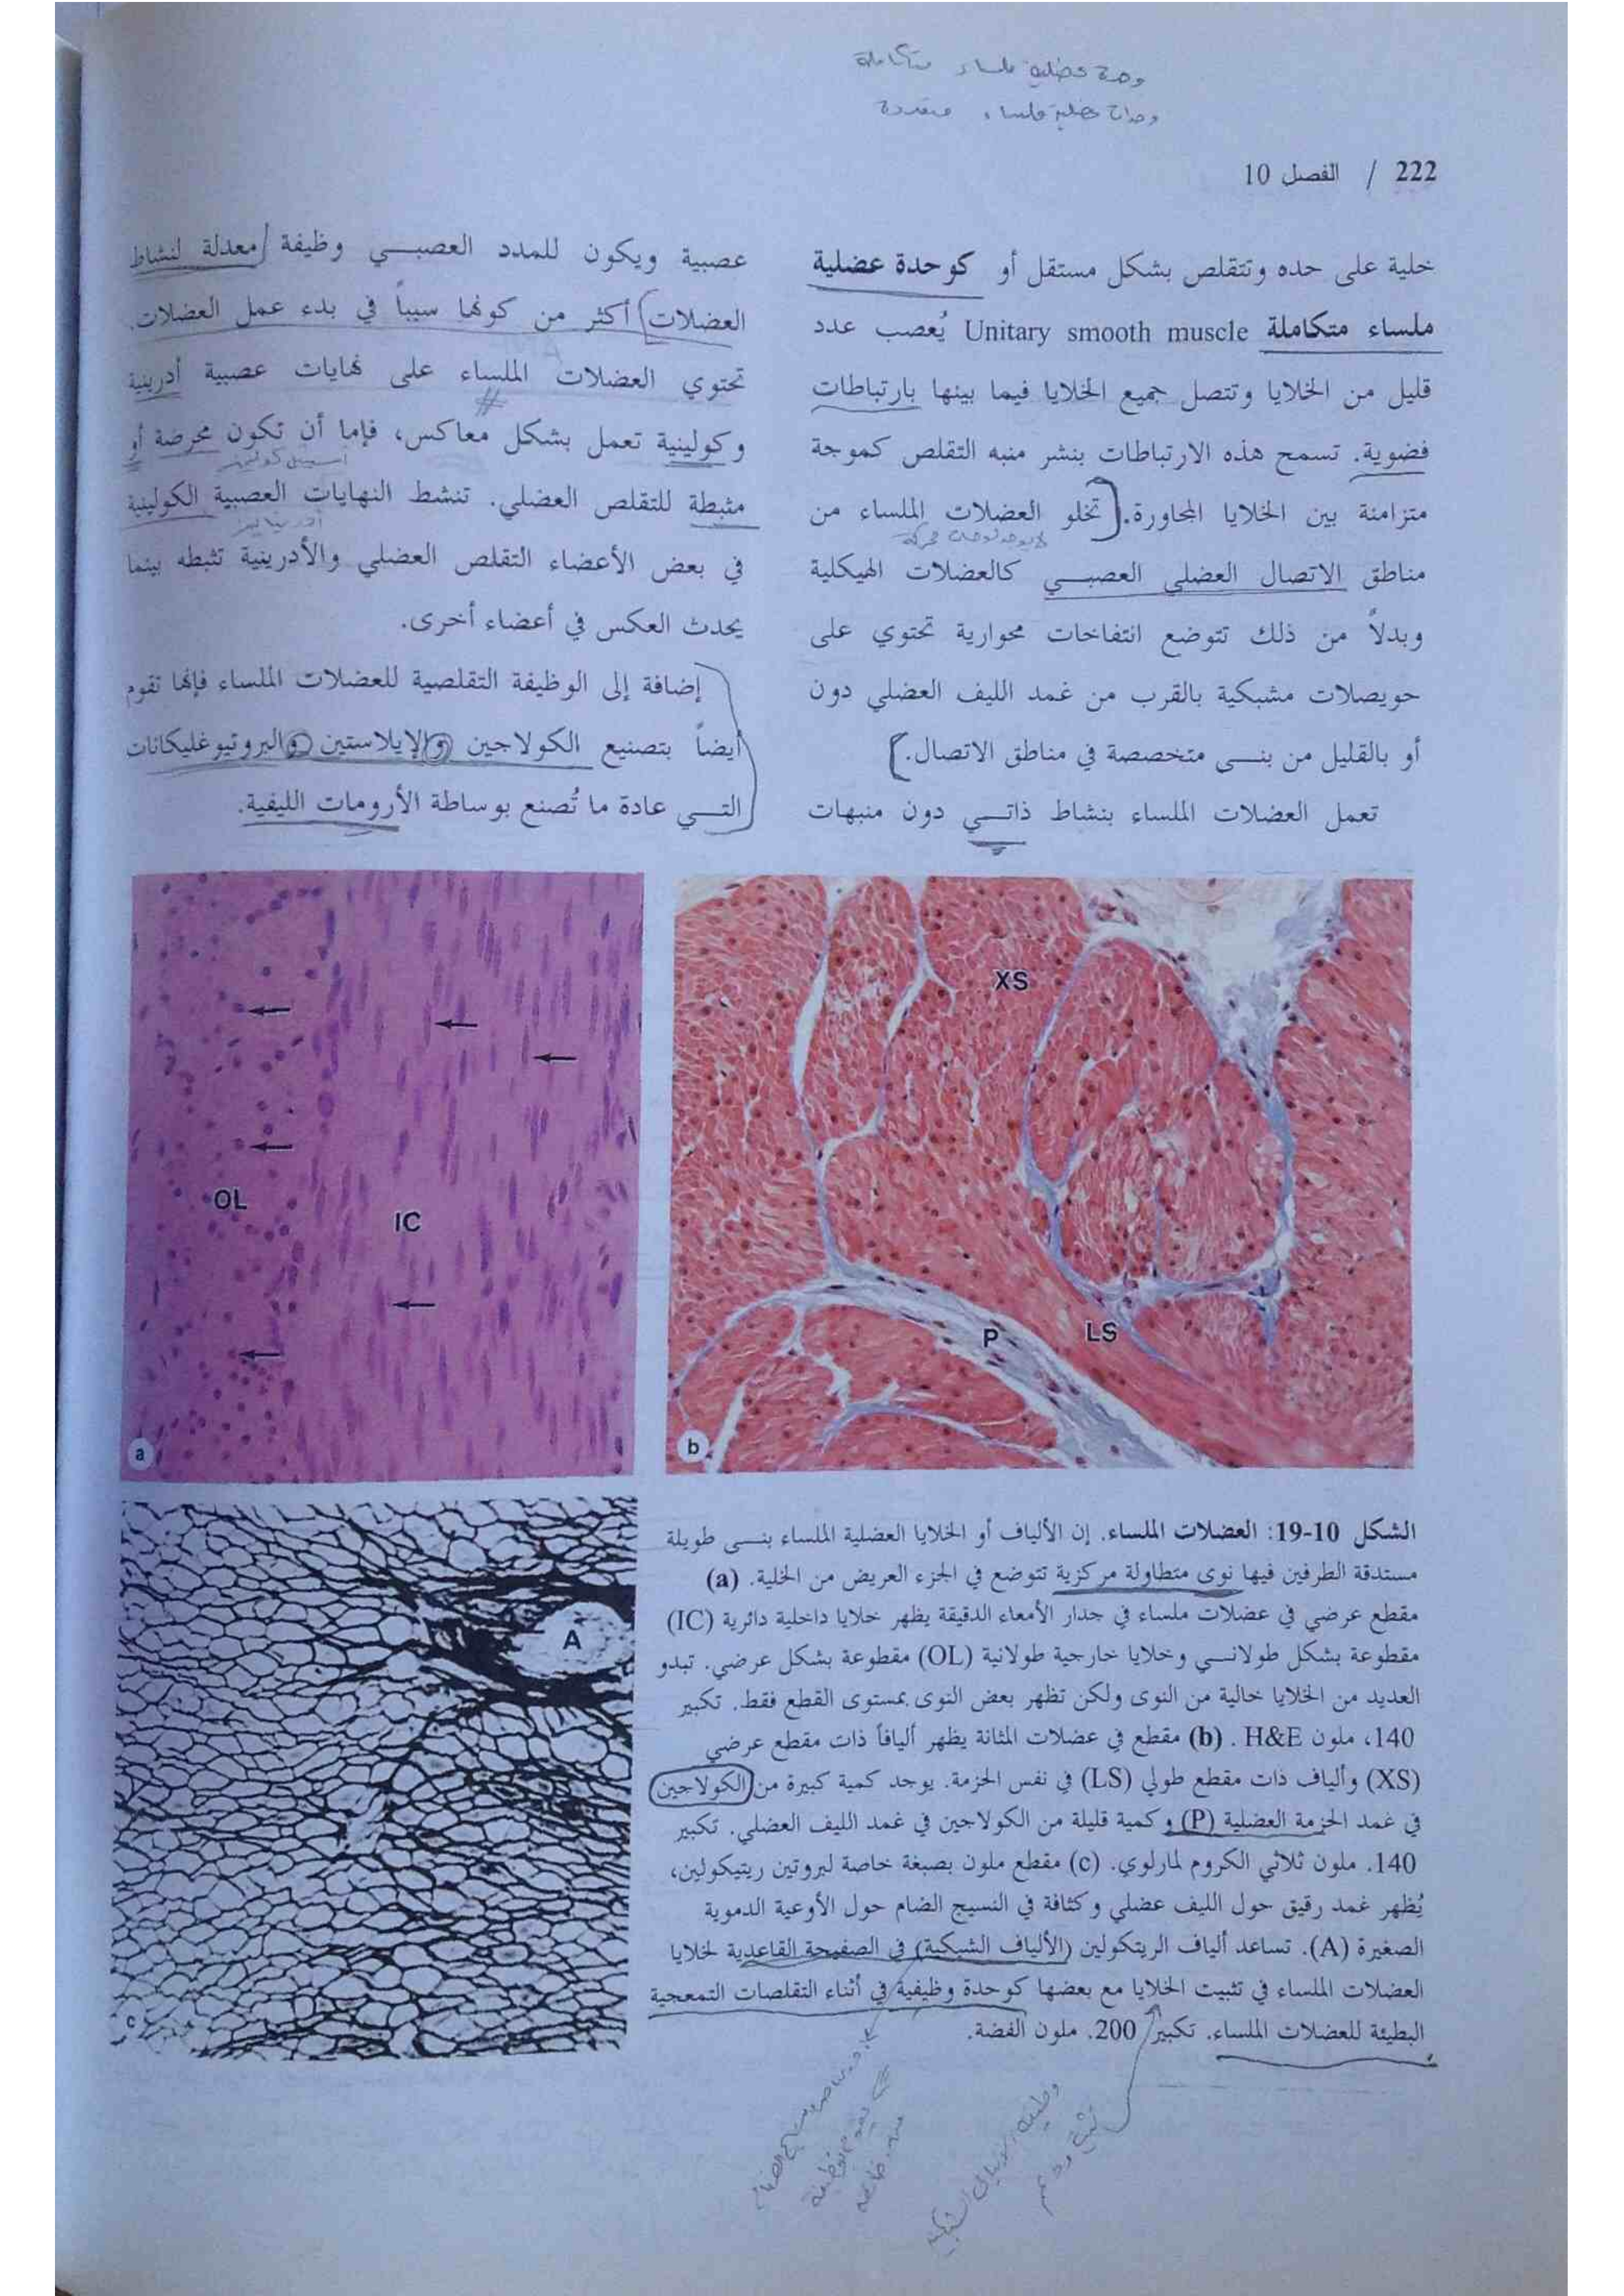 وحدة عضلية ملساء متكاملة
وحدات عضلية ملساء متعددة
222 / الفصل 10
خلية على حده وتتقلص بشكل مستقل أو كوحدة عضلية
ملساء متكاملة Unitary smooth muscle يُعصب عدد
قليل من الخلايا وتتصل جميع الخلايا فيما بينها بارتباطات
فضوية. تسمح هذه الارتباطات بنشر منبه التقلص كموجة
متزامنة بين الخلايا المجاورة. تخلو العضلات الملساء من
لا يوجد لوحات محركة
مناطق الاتصال العضلي العصبـــي كالعضلات الهيكلية
وبدلاً من ذلك تتوضع انتفاخات محوارية تحتوي على
حويصلات مشبكية بالقرب من غمد الليف العضلي دون
أو بالقليل من بنـــى متخصصة في مناطق الاتصال.
تعمل العضلات الملساء بنشاط ذاتـــي دون منبهات
عصبية ويكون للمدد العصبـــي وظيفة معدلة لنشاط
العضلات أكثر من كونها سبباً في بدء عمل العضلات.
تحتوي العضلات الملساء على نهايات عصبية أدرينية
وكولينية تعمل بشكل معاكس، فإما أن تكون محرضة أو
أستيل كولين
مثبطة للتقلص العضلي. تنشط النهايات العصبية الكولينية
في بعض الأعضاء التقلص العضلي والأدرينية تثبطه بينما
يحدث العكس في أعضاء أخرى.
إضافة إلى الوظيفة التقلصية للعضلات الملساء فإنها تقوم
أيضاً بتصنيع الكولاجين والإيلاستين والبروتيوغليكانات
التـــي عادة ما تُصنع بوساطة الأرومات الليفية.
OL
IC
a
XS
P
LS
b
A
c
الشكل 10-19: العضلات الملساء. إن الألياف أو الخلايا العضلية الملساء بنـــى طويلة
مستدقة الطرفين فيها نوى متطاولة مركزية تتوضع في الجزء العريض من الخلية. (a)
مقطع عرضي في عضلات ملساء في جدار الأمعاء الدقيقة يظهر خلايا داخلية دائرية (IC)
مقطوعة بشكل طولانـــي وخلايا خارجية طولانية (OL) مقطوعة بشكل عرضي. تبدو
العديد من الخلايا خالية من النوى ولكن تظهر بعض النوى بمستوى القطع فقط. تكبير
140، ملون H&E . (b) مقطع في عضلات المثانة يظهر أليافاً ذات مقطع عرضي
(XS) وألياف ذات مقطع طولي (LS) في نفس الحزمة. يوجد كمية كبيرة من الكولاجين
في غمد الحزمة العضلية (P) وكمية قليلة من الكولاجين في غمد الليف العضلي. تكبير
140. ملون ثلاثي الكروم لمارلوي. (c) مقطع ملون بصبغة خاصة لبروتين ريتيكولين،
يُظهر غمد رقيق حول الليف عضلي وكثافة في النسيج الضام حول الأوعية الدموية
الصغيرة (A). تساعد ألياف الريتكولين (الألياف الشبكية) في الصفيحة القاعدية لخلايا
العضلات الملساء في تثبيت الخلايا مع بعضها كوحدة وظيفية في أثناء التقلصات التمعجية
البطيئة للعضلات الملساء. تكبير 200. ملون الفضة.
وظيفة الألياف الشبكية